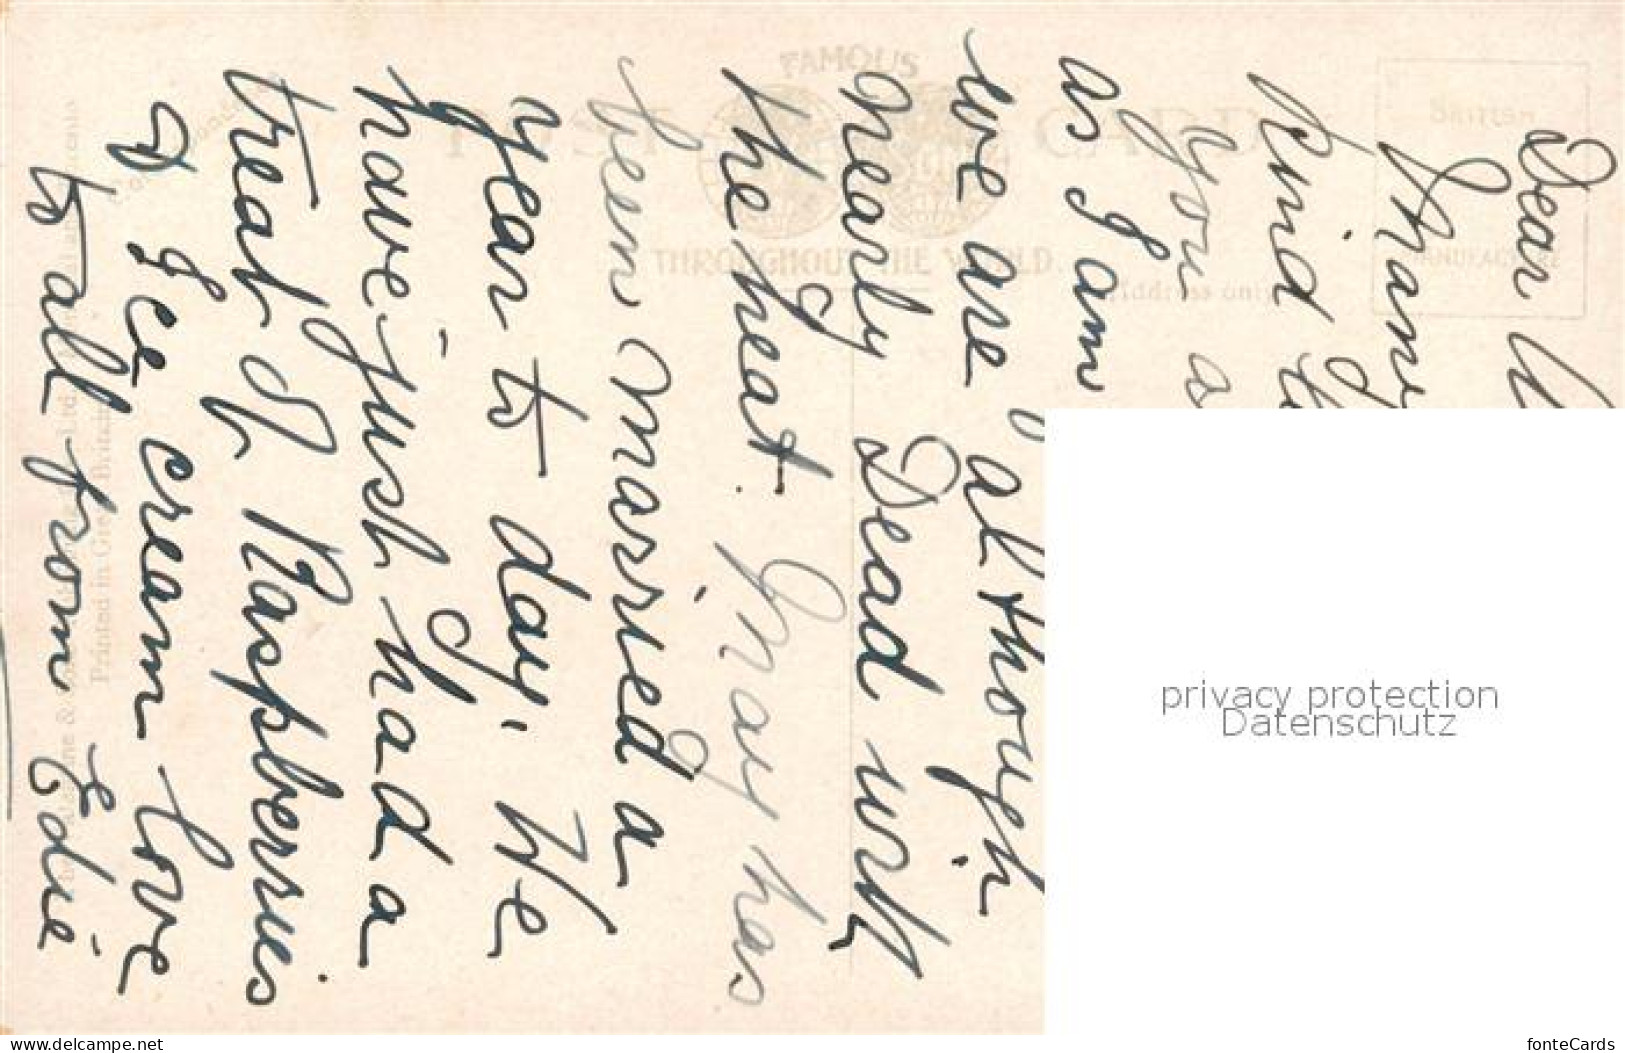 Dear
Many
kind
you
as I am
we are although
nearly Dead with
the heat. May has
been married a
year to day. We
have just had a
treat of Raspberries
& Ice cream love
to all from Edie
FAMOUS
POST CARD
THROUGHOUT THE WORLD.
Address only
British
MANUFACTURE
Printed in Great Britain
privacy protection
Datenschutz
www.delcampe.net
fonteCards